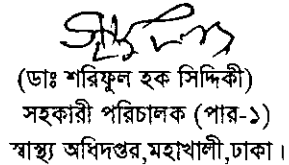 (ডাঃ শরিফুল হক সিদ্দিকী)
সহকারী পরিচালক (পার-১)
স্বাস্থ্য অধিদপ্তর,মহাখালী,ঢাকা।